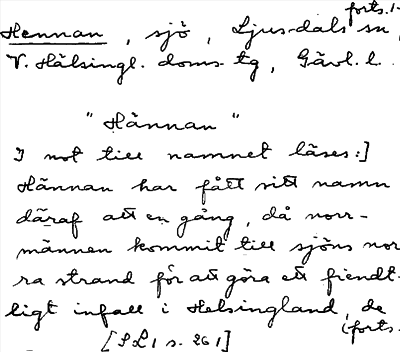 forts. 1.
Hennan, sjö, Ljusdals sn,
V. Hälsingl. doms. tg, Gävl. l.
"Hännan"
I not till namnet läses:]
Hännan har fått sitt namn
däraf att en gång, då norr-
männen kommit till sjöns nor
ra strand för att göra ett fiendt-
ligt infall i Helsingland, de
(forts.
[SL 1 s. 261]